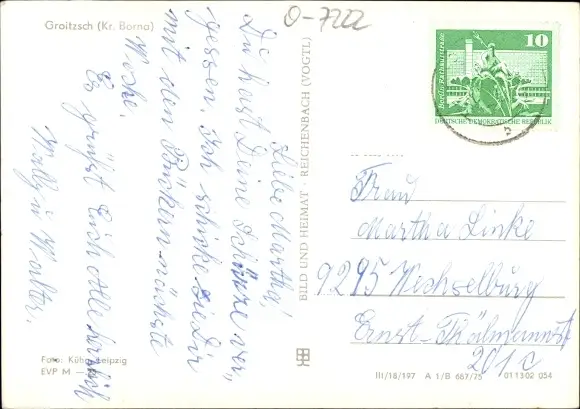 Groitzsch (Kr. Borna)
O-7222
Liebe Martha!
Du hast Deine Schürze ver,
gessen. Ich schicke sie Dir
mit den Päckchen nächste
Woche.
Es grüßt Euch alle herzlich
Walter.
Foto: Kühn, Leipzig
EVP M —
BILD UND HEIMAT · REICHENBACH (VOGTL)
10
Berlin Rathausstraße
DEUTSCHE DEMOKRATISCHE REPUBLIK
Frau
Martha Linke
9295 Wechselburg
Ernst-Thälmannst
201c
III/18/197 A 1/B 687/75 01 13 02 054